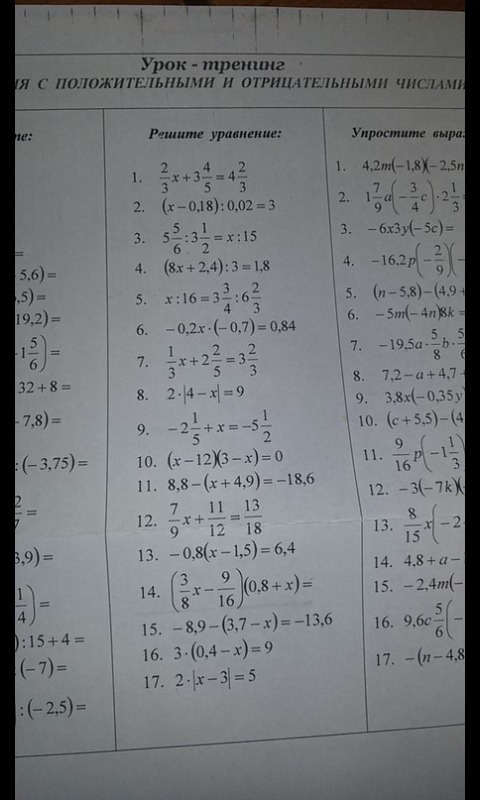 Урок - тренинг
ИЯ С ПОЛОЖИТЕЛЬНЫМИ И ОТРИЦАТЕЛЬНЫМИ ЧИСЛАМИ
те:
=
5,6) =
,5) =
19,2) =
1 5/6) =
32 + 8 =
- 7,8) =
: (- 3,75) =
2/7 =
3,9) =
1/4) =
) : 15 + 4 =
: (- 7) =
: (- 2,5) =
Решите уравнение:
1. 2/3 x + 3 4/5 = 4 2/3
2. (x - 0,18) : 0,02 = 3
3. 5 5/6 : 3 1/2 = x : 15
4. (8x + 2,4) : 3 = 1,8
5. x : 16 = 3 3/4 : 6 2/3
6. - 0,2x · (- 0,7) = 0,84
7. 1/3 x + 2 2/5 = 3 2/3
8. 2 · |4 - x| = 9
9. - 2 1/5 + x = -5 1/2
10. (x - 12)(3 - x) = 0
11. 8,8 - (x + 4,9) = -18,6
12. 7/9 x + 11/12 = 13/18
13. - 0,8(x - 1,5) = 6,4
14. (3/8 x - 9/16)(0,8 + x) =
15. - 8,9 - (3,7 - x) = -13,6
16. 3 · (0,4 - x) = 9
17. 2 · |x - 3| = 5
Упростите выра
1. 4,2m(-1,8)(- 2,5n
2. 1 7/9 a(- 3/4 c) · 2 1/3 =
3. - 6x3y(- 5c) =
4. -16,2p(- 2/9)(-
5. (n - 5,8) - (4,9 +
6. - 5m(- 4n)8k =
7. -19,5a · 5/8 b ·
8. 7,2 - a + 4,7 +
9. 3,8x(- 0,35y)
10. (c + 5,5) - (4
11. 9/16 p(-1 1/3)
12. - 3(- 7k)(-
13. 8/15 x(- 2
14. 4,8 + a -
15. - 2,4m(-
16. 9,6c 5/6 (-
17. - (n - 4,8